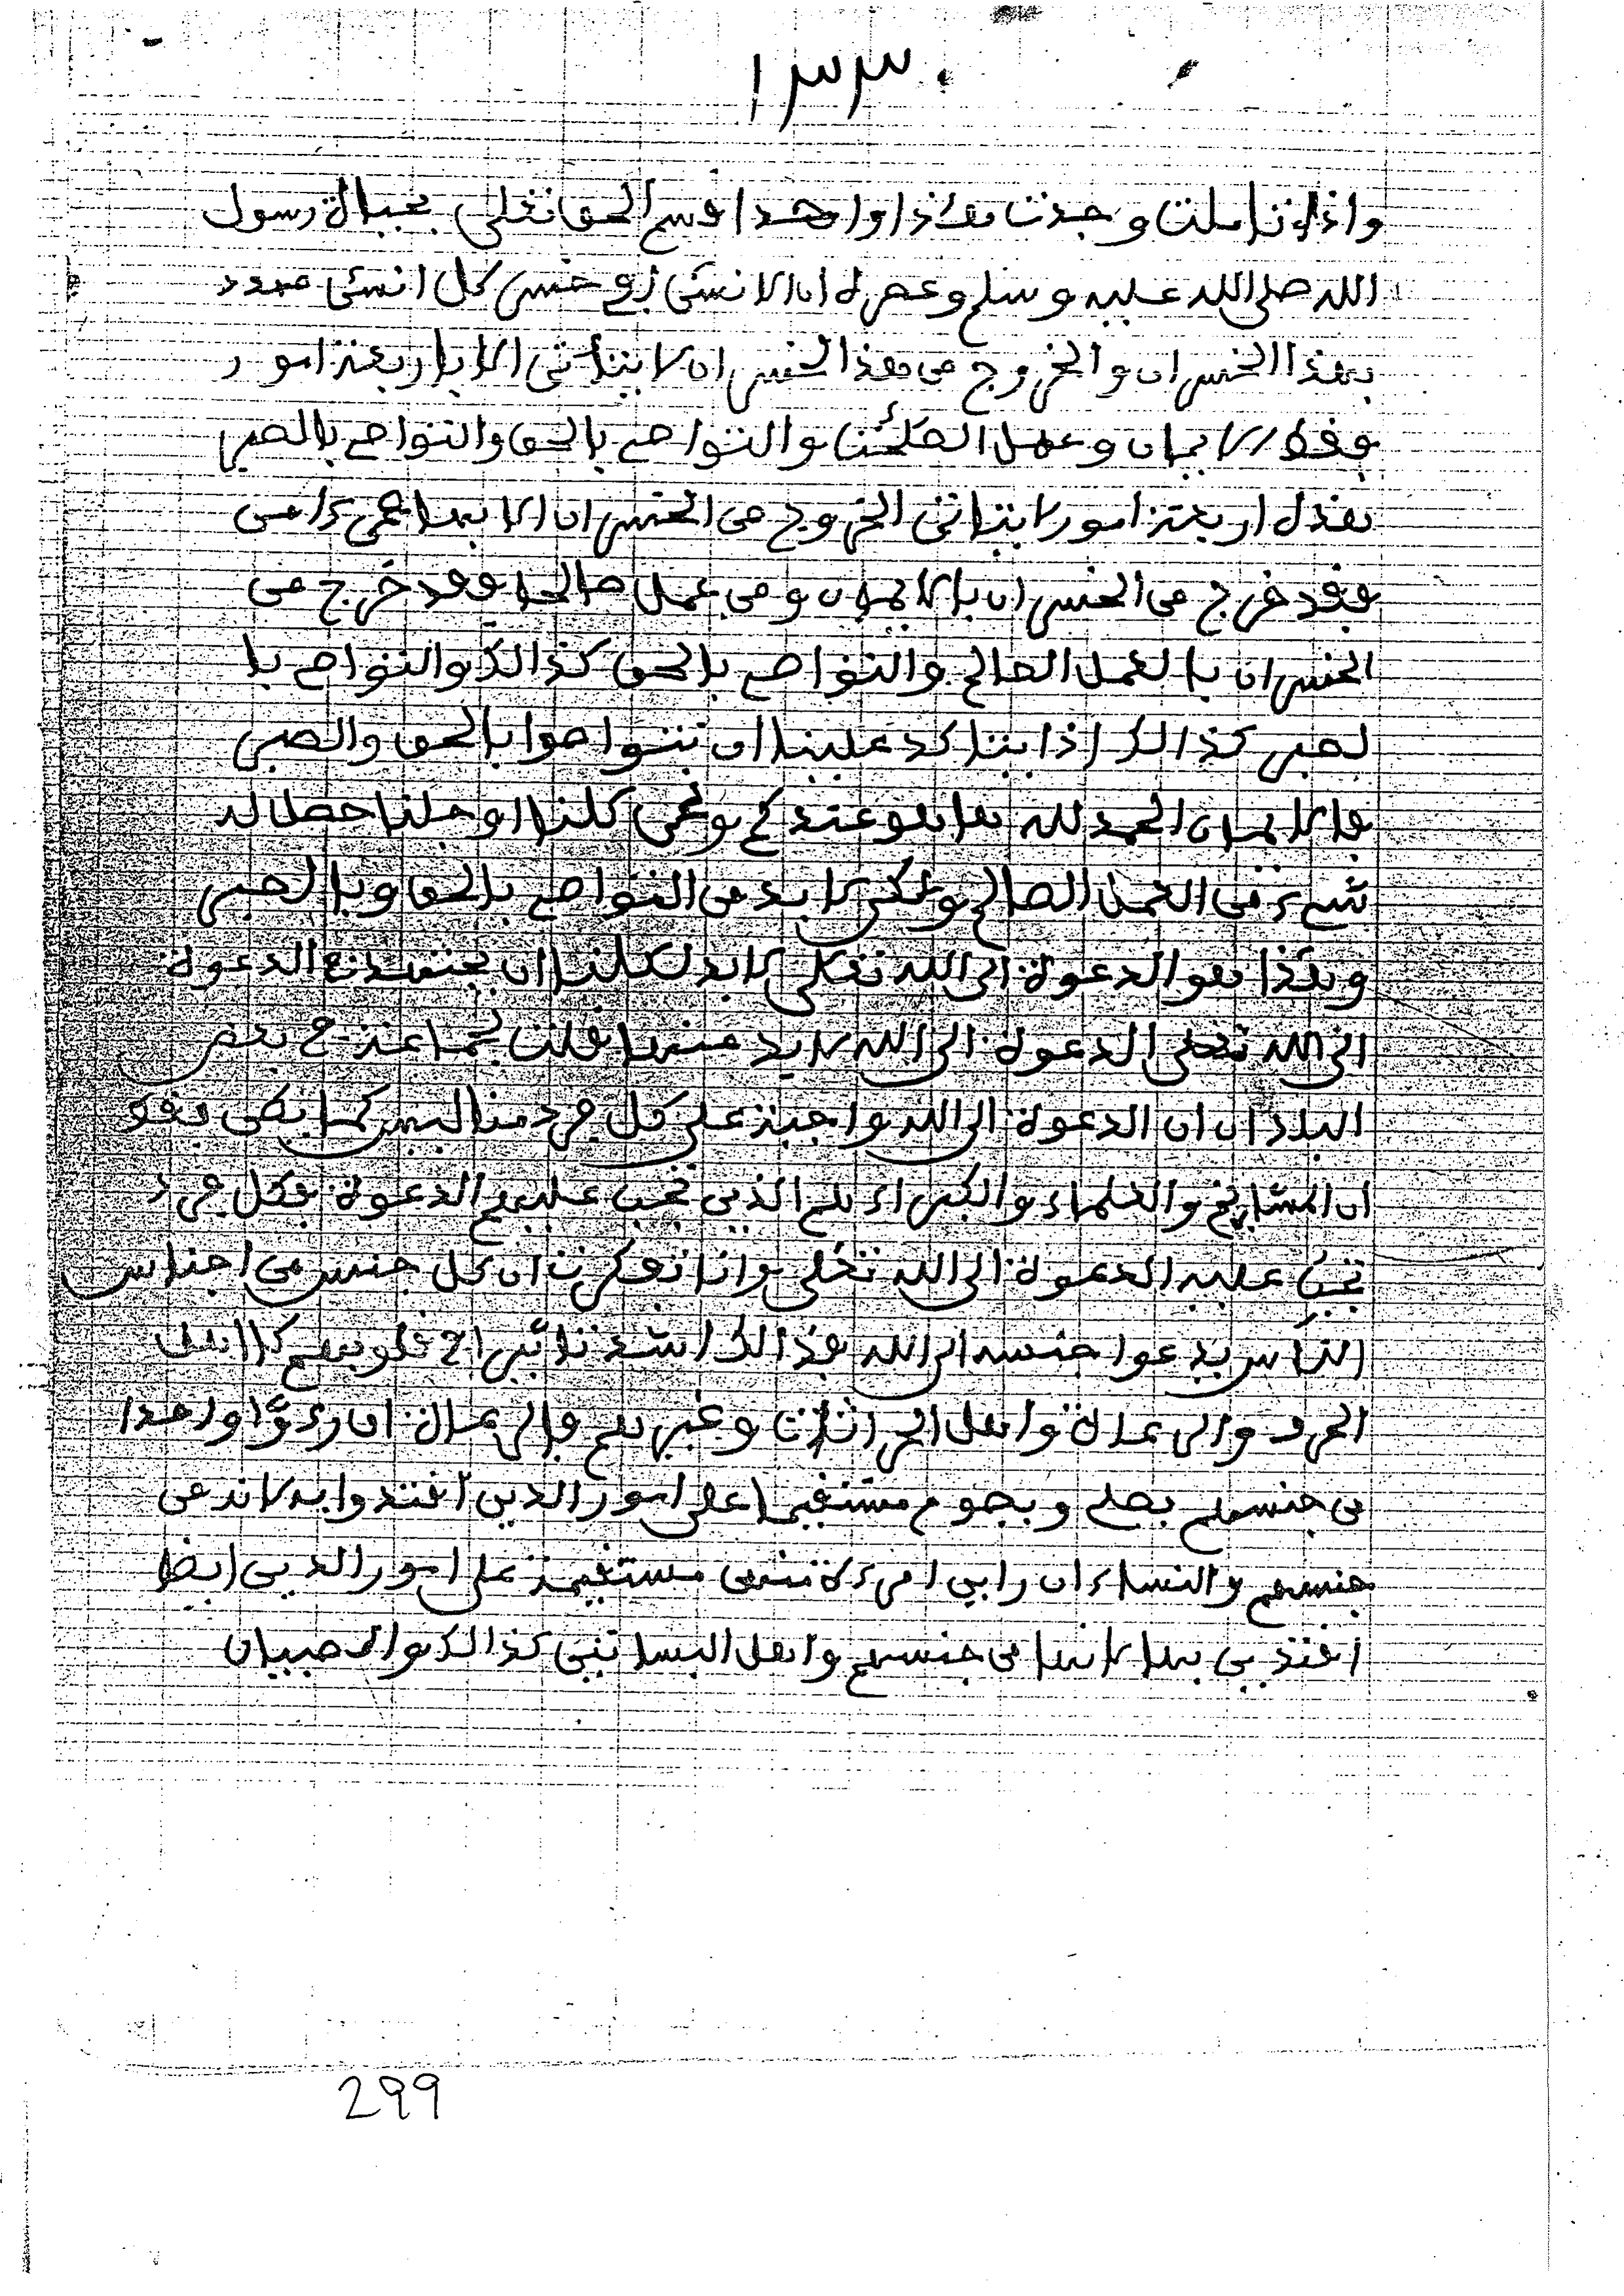 ١٣٣
واذا تاملت وجدت هكذا واحدا قسم الحق تعلى بحياة رسول
الله صلى الله عليه وسلم وعصره ان الانسن لفي خسر كل انسن مهدد
بهذا الخسران والخروج من هذا الخسران لا يتأتى الا باربعة امور
فقط الايمان وعمل الصلحت والتواصى بالحق والتواصى بالصبر
بهذه اربعة امور لا يتاتى الخروج من الخسران الا بها فمن ءامن
فقد خرج من الخسران بالايمان ومن عمل صالحا فقد خرج من
الخسران بالعمل الصالح والتواصى بالحق كذالك والتواصى با
لصبر كذالك اذا يتاكد علينا ان نتواصوا بالحق والصبر
فالايمان الحمد لله ها هو عندكم ونحن كلنا او جلنا حصل له
شيء من العمل الصالح ولكن لا بد من التواصى بالحق وبالصبر
وهكذا هو الدعوة الى الله تعلى لا بد لكلنا ان يجتهد في الدعوة
الى الله تعلى الدعوة الى الله لا بد منها قلت لجماعة في بعض
البلدان ان الدعوة الى الله واجبة على كل فرد منا ليس كما نظن فقط
ان المشايخ والعلماء والكبراء هم الذين تجب عليهم الدعوة فكل فرد
تجب عليه الدعوة الى الله تعلى وانا تفكرت ان كل جنس من اجناس
الناس يدعوا جنسه الى الله فذالك اشد تاثيرا في قلوبهم كاهل
الحرف والرعاة واهل الحراثات وغيرهم فالرعاة ان رءوا واحدا
من جنسهم يصلى ويصوم مستقيما على امور الدين اقتدوا به لانه من
جنسهم والنساء ان راين امرءة منهن مستقيمة على امور الدين ايضا
اقتدين بها لانها من جنسهم واهل البساتين كذالك والصبيان
299